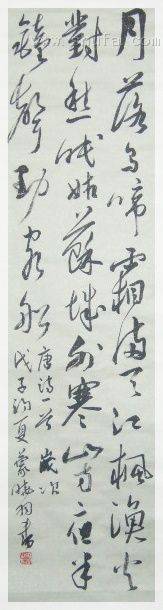 月落烏啼霜滿天江楓漁火
對愁眠姑蘇城外寒山寺夜半
鐘聲到客船 唐诗一首 歲次
戊子初夏 書